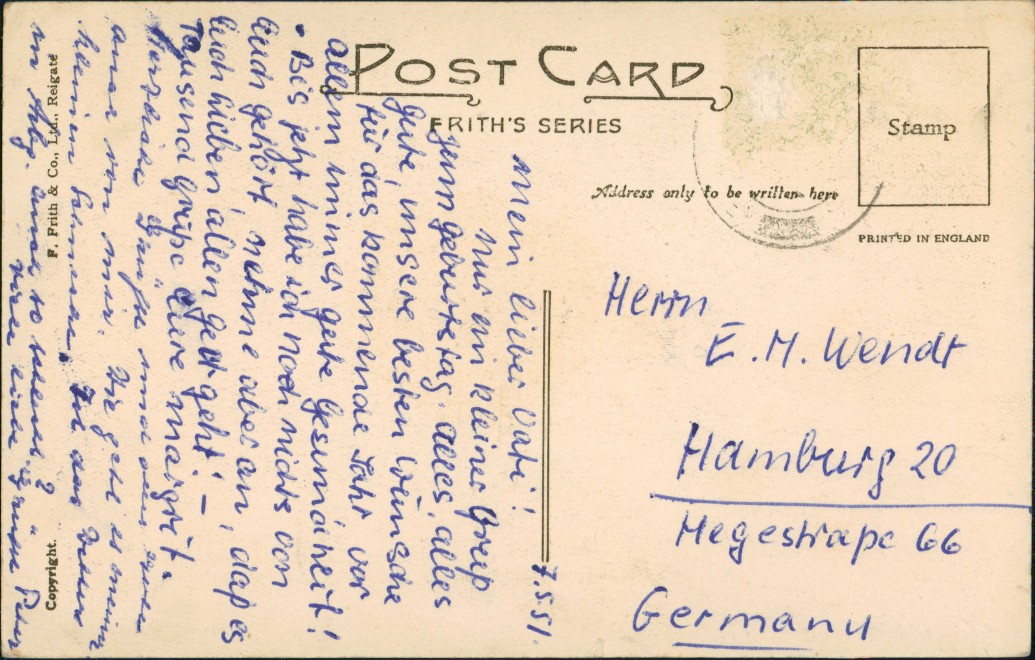 POST CARD
FRITH'S SERIES
Address only to be written here
Stamp
PRINTED IN ENGLAND
F. Frith & Co., Ltd., Reigate
Copyright.
7.5.51.
Mein lieber Vati!
nur ein kleiner Gruß
zum Geburtstag. Alles, alles
Gute, unsere besten Wünsche
für das kommende Jahr vor
allem immer gute Gesundheit!
Bis jetzt habe ich noch nichts von
Euch gehört, nehme aber an, daß es
Euch lieben allen gut geht! –
Tausend Grüße Eure Margret.
Herzliche Grüße und
von mir. Wie geht es meiner
kleinen In das
in so
Peter
Herrn
E. M. Wendt
Hamburg 20
Hegestraße 66
Germany